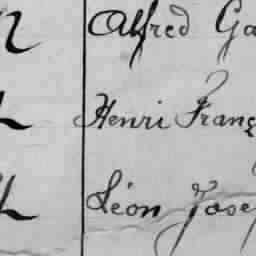 Alfred Ga
Henri Franç
Léon Josep